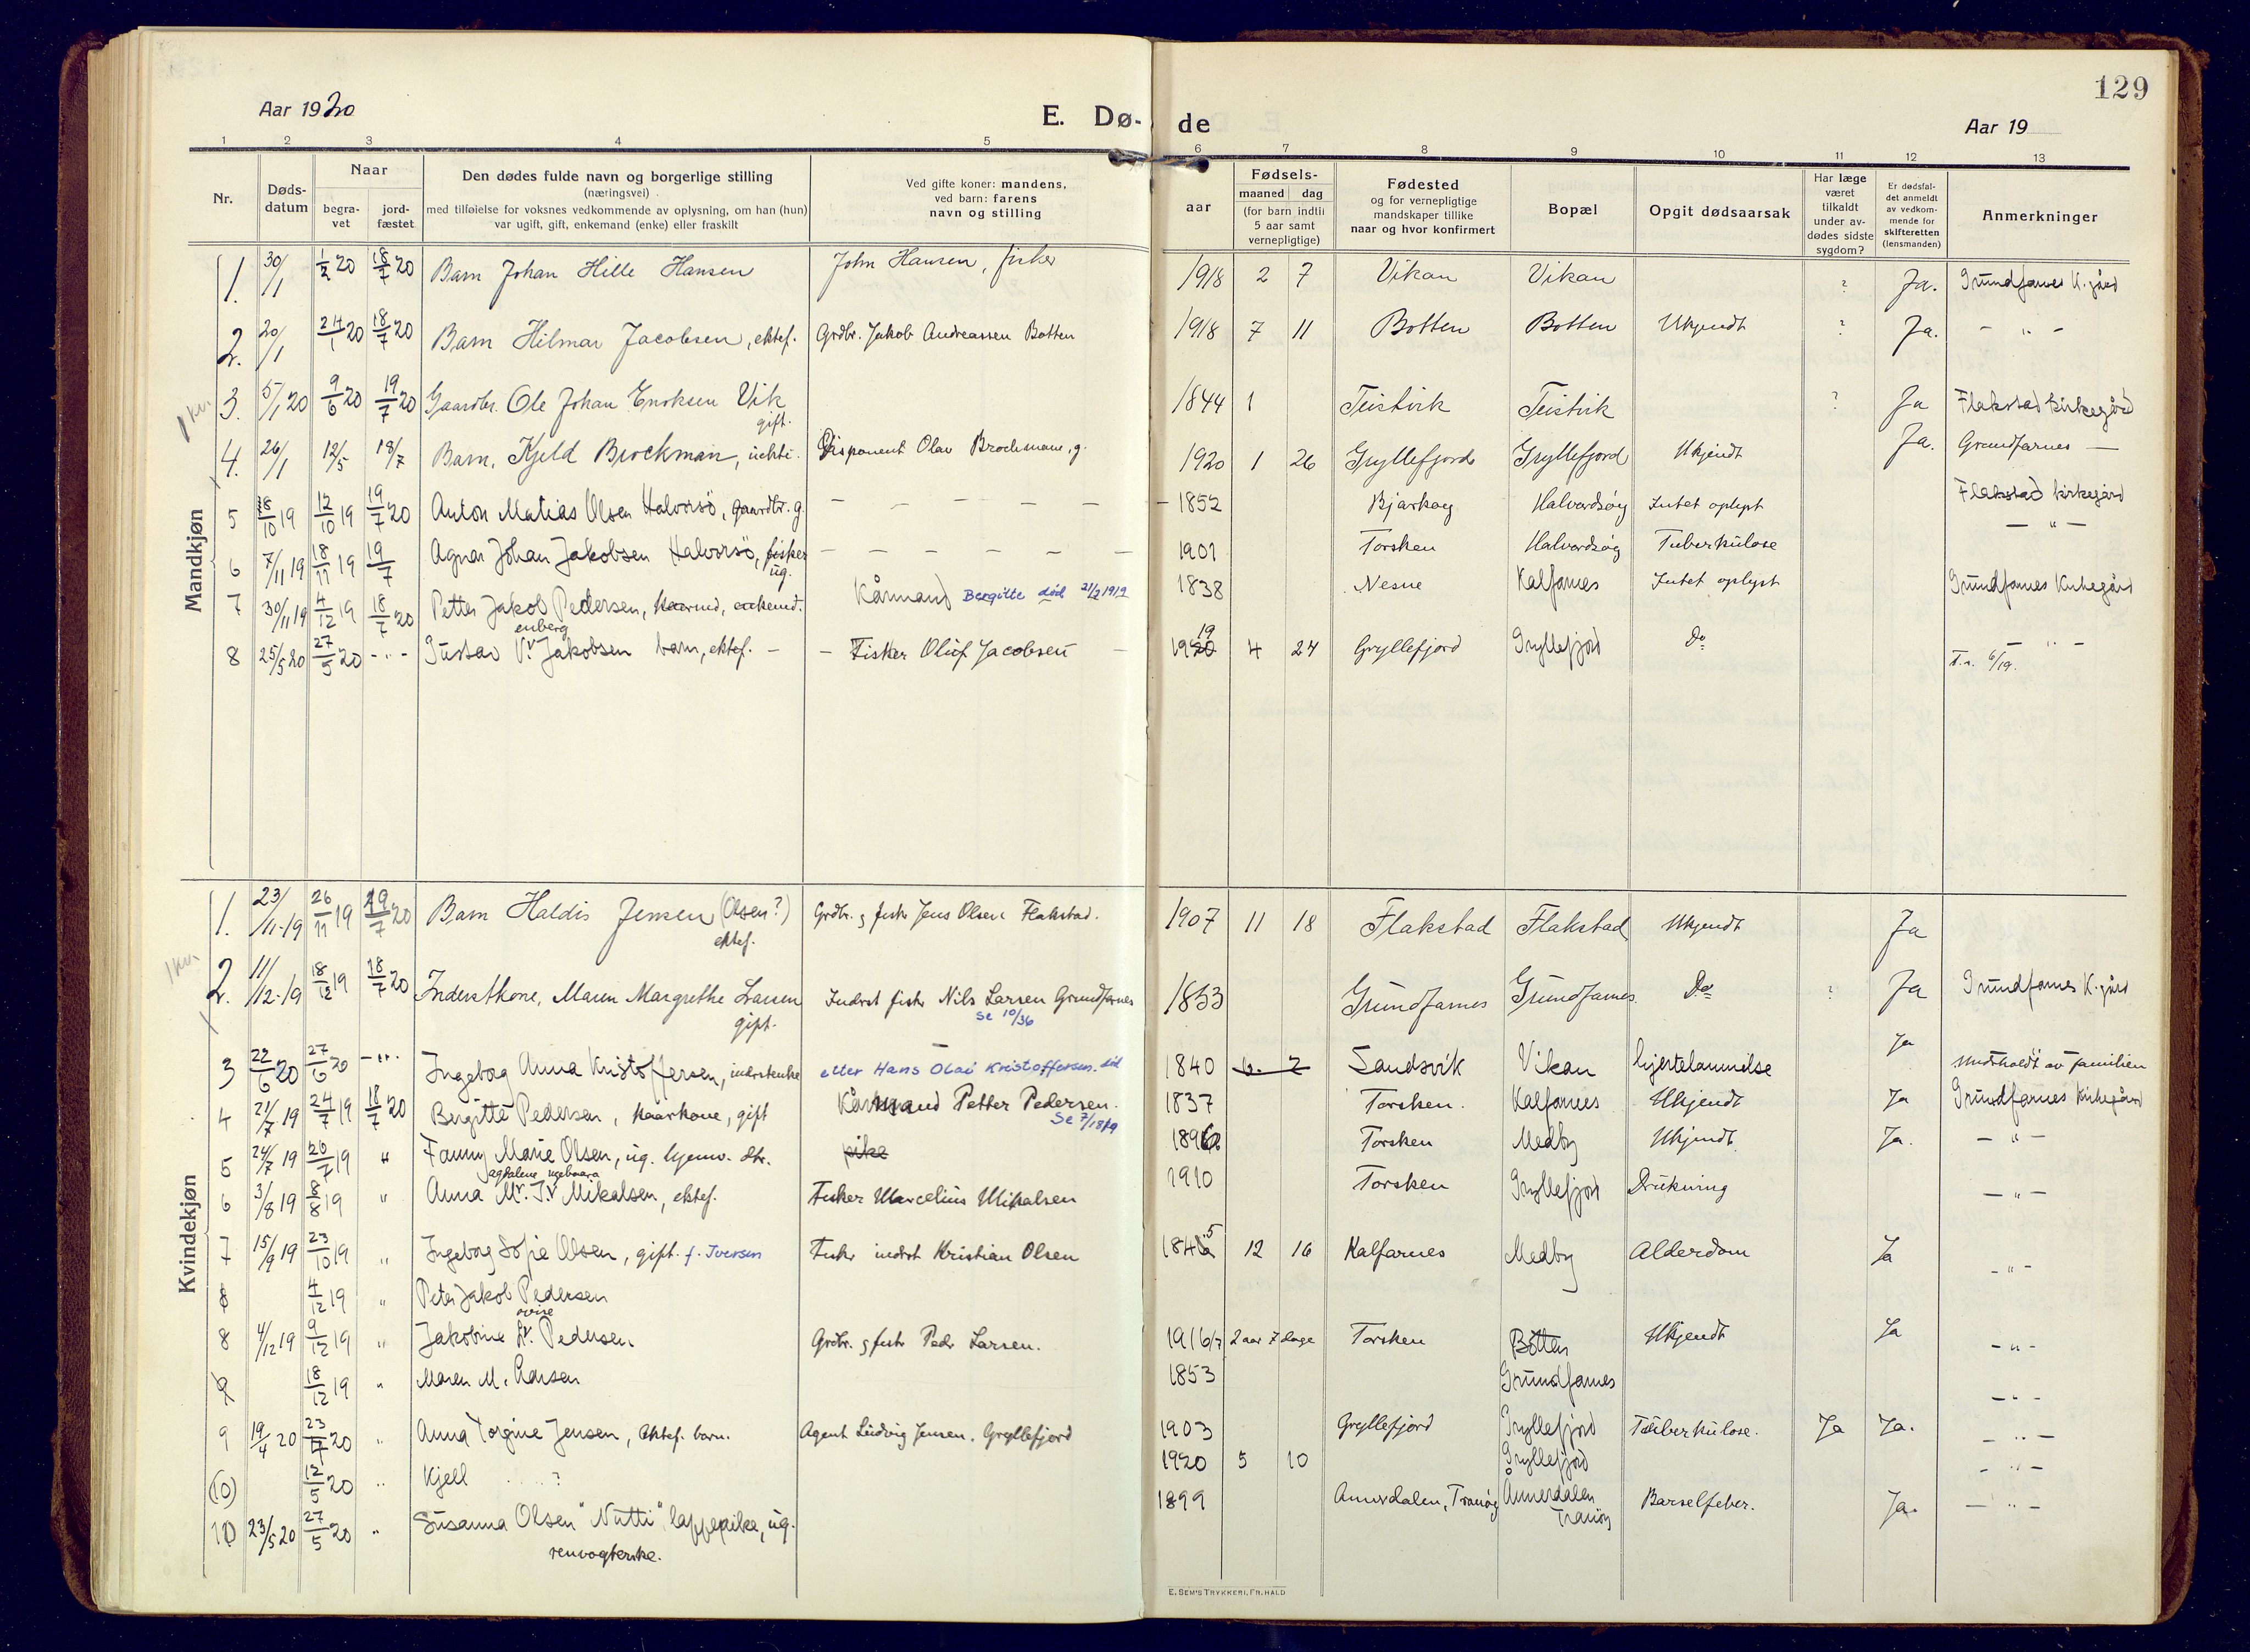 129
Aar 1920
E. Dø-
de
Aar 19
1 2 3 4 5 6 7 8 9 10 11 12 13
Nr.
Døds-
datum
Naar
begra-
vet
jord-
fæstet
Den dødes fulde navn og borgerlige stilling
(næringsvei)
med tilføielse for voksnes vedkommende av oplysning, om han (hun)
var ugift, gift, enkemand (enke) eller fraskilt
Ved gifte koner: mandens,
ved barn: farens
navn og stilling
aar
Fødsels-
maaned dag
(for barn indtil
5 aar samt
vernepligtige)
Fødested
og for vernepligtige
mandskaper tillike
naar og hvor konfirmert
Bopæl
Opgit dødsaarsak
Har læge
været
tilkaldt
under av-
dødes sidste
sygdom?
Er dødsfal-
det anmeldt
av vedkom-
mende for
skifteretten
(lensmanden)
Anmerkninger
Mandkjøn
1. 30/1 1/2 20 18/7 20 Barn Johan Hille Hansen John Hansen, fisker 1918 2 7 Vikan Vikan ? Ja. Grundfarnes K.gård
2. 20/1 24/1 20 18/7 20 Barn Hilmar Jacobsen, ektef. Grdbr. Jakob Andreassen Botten 1918 7 11 Botten Botten Ukjendt ? Ja. - " -
3. 5/1 20 9/6 20 19/7 20 Gaardbr. Ole Johan Enoksen Vik 1844 1 Teistvik Teistvik ? Ja Flakstad kirkegård
gift.
4. 26/1 12/5 18/7 Barn, Kjeld Brockman, uekte. Disponent Olav Brockmann, g. 1920 1 26 Gryllefjord Gryllefjord Ukjendt Ja. Grundfarnes —
5 18/10 19 12/10 19 19/7 20 Anton Matias Olsen Halvorsö, gaardbr. g. - - - - - - 1852 Bjarkøy Halvardsøy Intet oplyst Flakstad kirkegård
6 7/11 19 18/11 19 19/7 Agnar Johan Jakobsen Halvorsö, fisker - - - - - - 1901 Torsken Halvardsøy Tuberkulose — " —
ug.
7 30/11 19 4/12 19 18/7 20 Petter Jakob Pedersen, kaarmd, enkemd. Kårmand Bergitte død 21/7 1919 1838 Nesne Kalfarnes Intet oplyst Grundfarnes Kirkegård
enberg
8 25/5 20 27/5 20 - " - Gustav V. Jakobsen barn, ektef. - - Fisker Oluf Jacobsen - 1920 19 4 24 Gryllefjord Gryllefjord Do - " -
T.n. 6/19.
Kvindekjøn
1. 23/11-19 26/11 19 19/7 20 Barn Haldis Jensen (Olsen?) Grdbr. g fisk Jens Olsen Flakstad. 1907 11 18 Flakstad Flakstad Ukjendt Ja
ektef.
2. 11/12-19 18/12 19 18/7 20 Inderstkone, Maren Margrethe Larsen Inderst fisk Nils Larsen Grundfarnes 1853 Grundfarnes Grundfarnes. Do ? Ja Grundfarnes K.gård
gift. Se 10/36
3 22/6 20 27/6 20 - " - Ingeborg Anna Kristoffersen, inderstenke etter Hans Olai Kristoffersen. død 1840 6. 2 Sandsvik Vikan hjertelammelse Ja Underholdt av familien
4 21/7 19 24/7 19 18/7 20 Bergitte Pedersen, kaarkone, gift Kårmand Petter Pedersen. 1837 Torsken. Kalfarnes Ukjendt Ja Grundfarnes Kirkegård
Se 7/1819
5 24/7 19 26/7 19 " Fanny Marie Olsen, ug. hjemv. dtr. pike 1896 Torsken Medby Ukjendt Ja. - " -
agdalene ngeborg
6 3/8 19 8/8 19 " Anna M. I. Mikalsen, ektef. Fisker Marcelius Mikalsen 1910 Torsken Gryllefjord Drukning - " -
7 15/9 19 23/10 19 " Ingeborg Sofie Olsen, gift. f. Iversen Fisk inderst Kristian Olsen 1845 12 16 Kalfarnes Medby Alderdom Ja - " -
8 4/12 19 " Peter Jakob Pedersen
ovise
8 4/12 19 9/12 19 " Jakobine L. Pedersen Grdbr. g fisk Peder Larsen. 1916/7 2 aar 7 dage Torsken Botten Ukjendt Ja - " -
9 18/12 19 " Maren M. Larsen 1853 Grundfarnes - " -
9 19/4 20 23/4 20 " Anna Torgine Jensen, ektef. barn. Agent Ludvig Jensen, Gryllefjord 1903 Gryllefjord Gryllefjord Tuberkulose. Ja Ja. - " -
(10) 12/5 20 " Kjell . . . . ? 1920 5 10 Gryllefjord - " -
10 23/5 20 27/5 20 " Susanna Olsen "Nutti", lappepike, ug. 1899 Anderdalen, Tranøy Anderdalen Barselfeber. Ja. - " -
Tranøy
renvogterske.
E. SEM'S TRYKKERI, FR.HALD